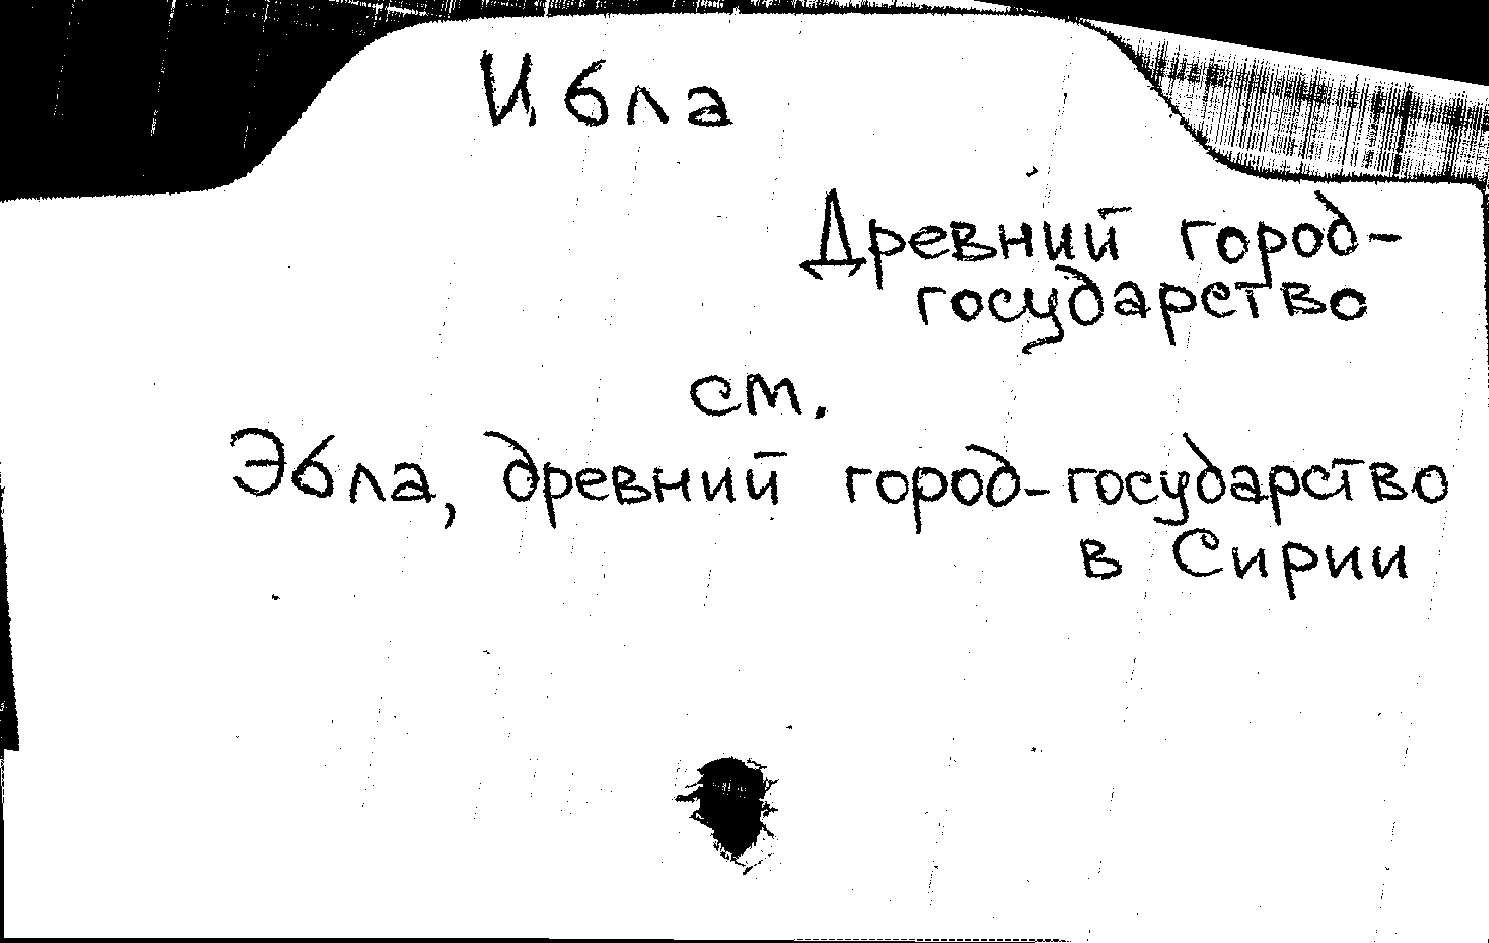 Ибла
Древний город-
государство
см.
Эбла, древний город-государство
в Сирии